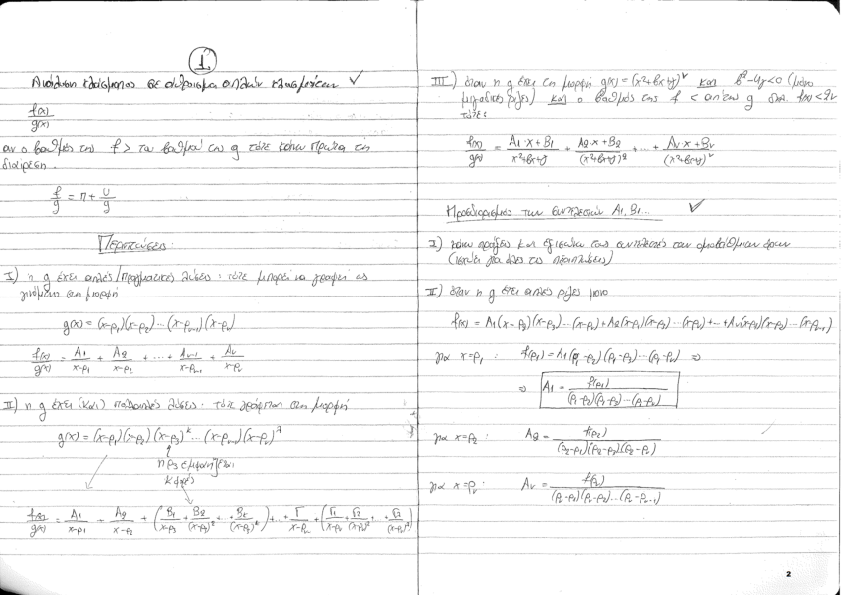 1
Ανάλυση κλάσματος σε άθροισμα απλών κλασμάτων ✓
f(x)/g(x)
αν ο βαθμός της f > του βαθμού της g τότε κάνω πρώτα τη
διαίρεση.
f/g = π + υ/g
Περιπτώσεις:
I) η g έχει απλές/πραγματικές λύσεις: τότε μπορεί να γραφεί ως
γινόμενο στη μορφή
g(x) = (x-ρ1)(x-ρ2)...(x-ρν-1)(x-ρν)
f(x)/g(x) = A1/(x-ρ1) + A2/(x-ρ2) + ... + Aν-1/(x-ρν-1) + Aν/(x-ρν)
II) η g έχει (και) πολλαπλές λύσεις. τότε γράφεται στη μορφή
g(x) = (x-ρ1)(x-ρ2)(x-ρ3)^κ...(x-ρν-1)(x-ρν)^λ
η ρ3 εμφανίζεται
κ φορές
f(x)/g(x) = A1/(x-ρ1) + A2/(x-ρ2) + (B1/(x-ρ3) + B2/(x-ρ3)² + ... + Bκ/(x-ρ3)^κ) + ... + Γ/(x-ρν-1) + (Γ1/(x-ρν) + Γ2/(x-ρν)² + ... + Γλ/(x-ρν)^λ)
III) όταν η g έχει τη μορφή g(x) = (x²+βx+γ)^ν και β²-4γ<0 (μόνο
μιγαδικές ρίζες) και ο βαθμός της f < από της g δηλ f(x)<2ν
τότε:
f(x)/g(x) = (A1·x+B1)/(x²+βx+γ) + (A2·x+B2)/(x²+βx+γ)² + ... + (Aν·x+Bν)/(x²+βx+γ)^ν
Προσδιορισμός των συντελεστών A1, B1... ✓
I) κάνω πράξεις και εξισώνω τους συντελεστές των ομοβάθμιων όρων
(ισχύει για όλες τις περιπτώσεις)
II) όταν η g έχει απλές ρίζες μόνο
f(x) = A1(x-ρ2)(x-ρ3)...(x-ρν) + A2(x-ρ1)(x-ρ3)...(x-ρν) + ... + Aν(x-ρ1)(x-ρ2)...(x-ρν-1)
για x=ρ1: f(ρ1) = A1(ρ1-ρ2)(ρ1-ρ3)...(ρ1-ρν) ⇒
⇒ A1 = f(ρ1)/(ρ1-ρ2)(ρ1-ρ3)...(ρ1-ρν)
για x=ρ2: A2 = f(ρ2)/(ρ2-ρ1)(ρ2-ρ3)(ρ2-ρν)
για x=ρν: Aν = f(ρν)/(ρν-ρ1)(ρν-ρ2)...(ρν-ρν-1)
2